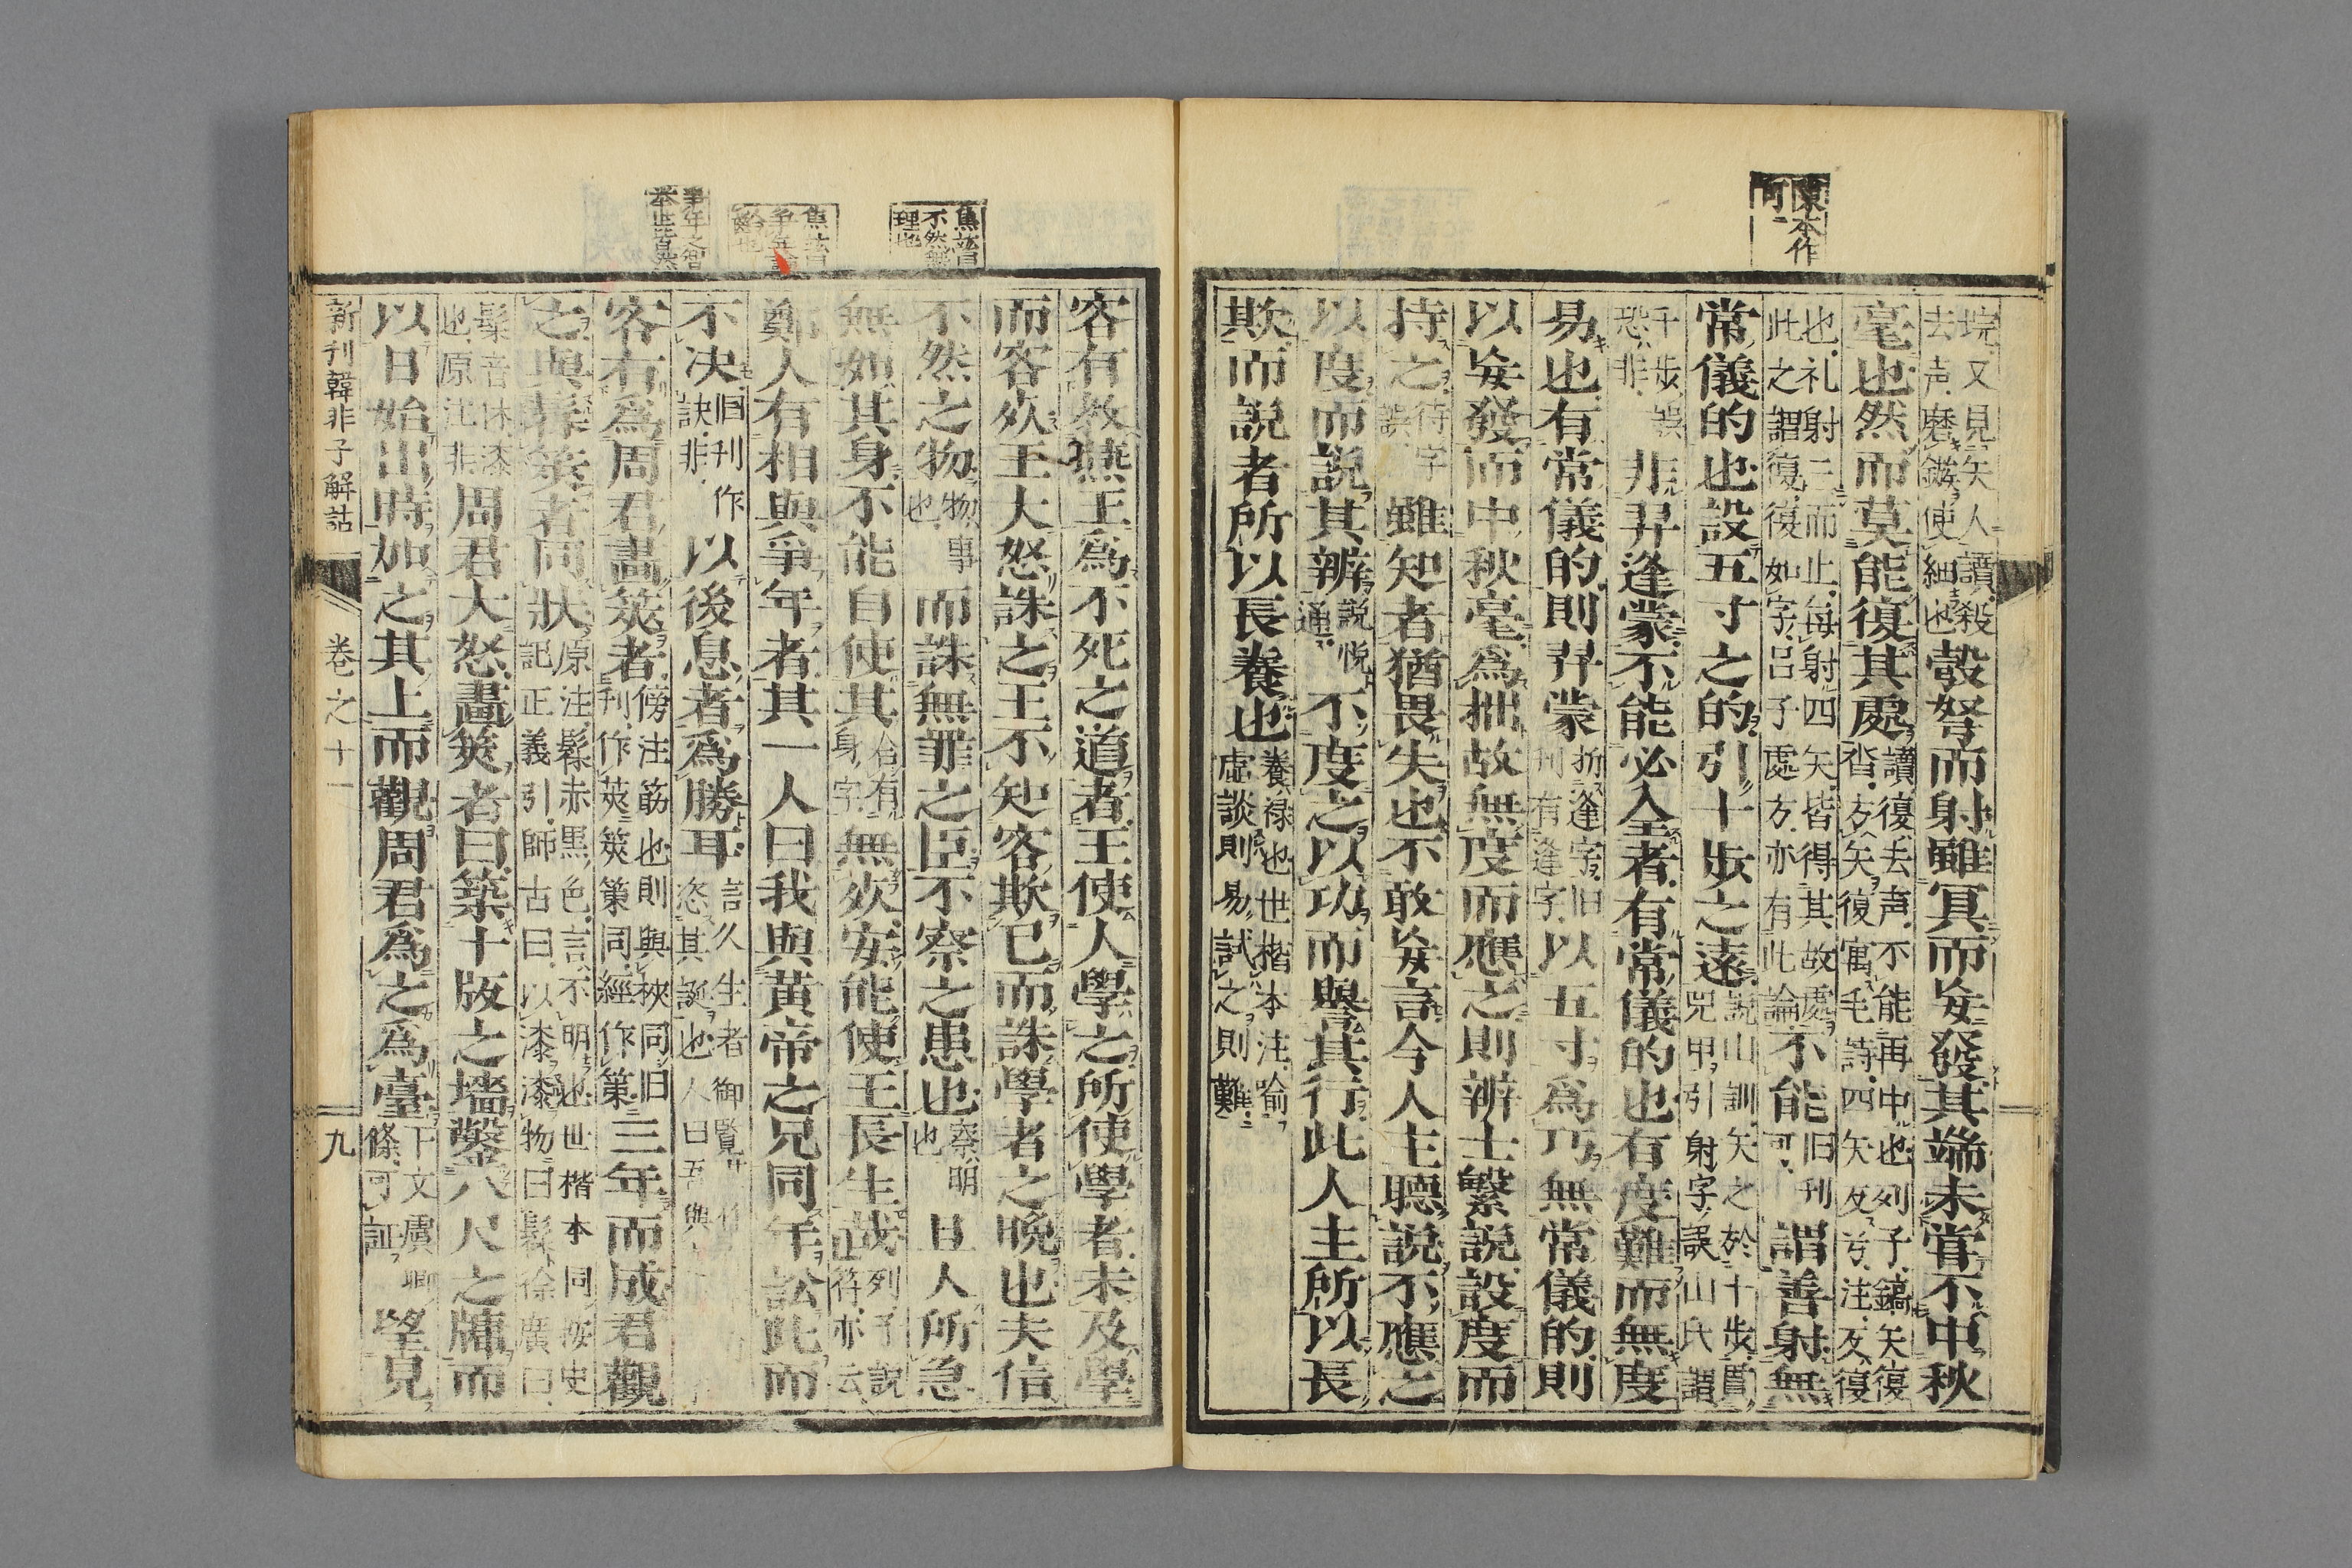 陳本作
可
垸又見矢人讀殺
去声磨鏃使細也
彀弩而射雖冥而妄發其端未甞不中秋
毫也然而莫能復其處
讀復去声不能再中也列子鏑矢復
沓方矢復寓毛詩四矢反兮注反復
也礼射三而止毎射四矢皆得其故處
此之謂復復如字呂子處方亦有此論
不能
旧刊
可
謂善射無
常儀的也設五寸之的引十歩之遠
説山訓矢之於十歩貫
兕甲引射字誤山氏謂
千歩誤
恐非
非羿逢蒙不能必全者有常儀的也有度難而無度
易也有常儀的則羿蒙
折逢字旧
刊有逢字
以五寸爲巧無常儀的則
以妄發而中秋毫爲拙故無度而應之則辨士繁説設度而
持之
待字
誤
雖知者猶畏失也不敢妄言今人主聴説不應之
以度而説其辨
説悦
通
不度之以功而譽其行此人主所以長
欺而説者所以長養也
養禄也世楷本注喩
虚談則易試之則難
焦竑曰
不然無
理也
焦竑曰
争年之
客有教燕王爲不死之道者王使人學之所使學者未及學
而客死王大怒誅之王不知客欺已而誅學者之晩也夫信
不然之物
物事
也
而誅無罪之臣不察之患也
察明
也
且人所急
無如其身不能自使其
合有
身字
無死安能使王長生哉
列子説
符亦云
鄭人有相與爭年者其一人曰我與黄帝之兄同年訟此而
不决
旧刊作
訣非
以後息者爲勝耳
言久生者御覧廿
恣其誕也人曰吾與
客有爲周君畫筴者
傍注筋也則與挾同旧
刊作莢筴策同經作策
三年而成君觀
之與髹筴者同狀
原注髹赤黒色言不明也世楷本同按史
記正義引師古曰以漆漆物曰髹徐廣曰
髹音休漆
也原注非
周君大怒畫筴者曰築十版之墻鑿八尺之牗而
以日始出時加之其上而觀周君爲之爲臺
下文虞卿
條可証
望見
新刊韓非子解詁
卷之十一
九